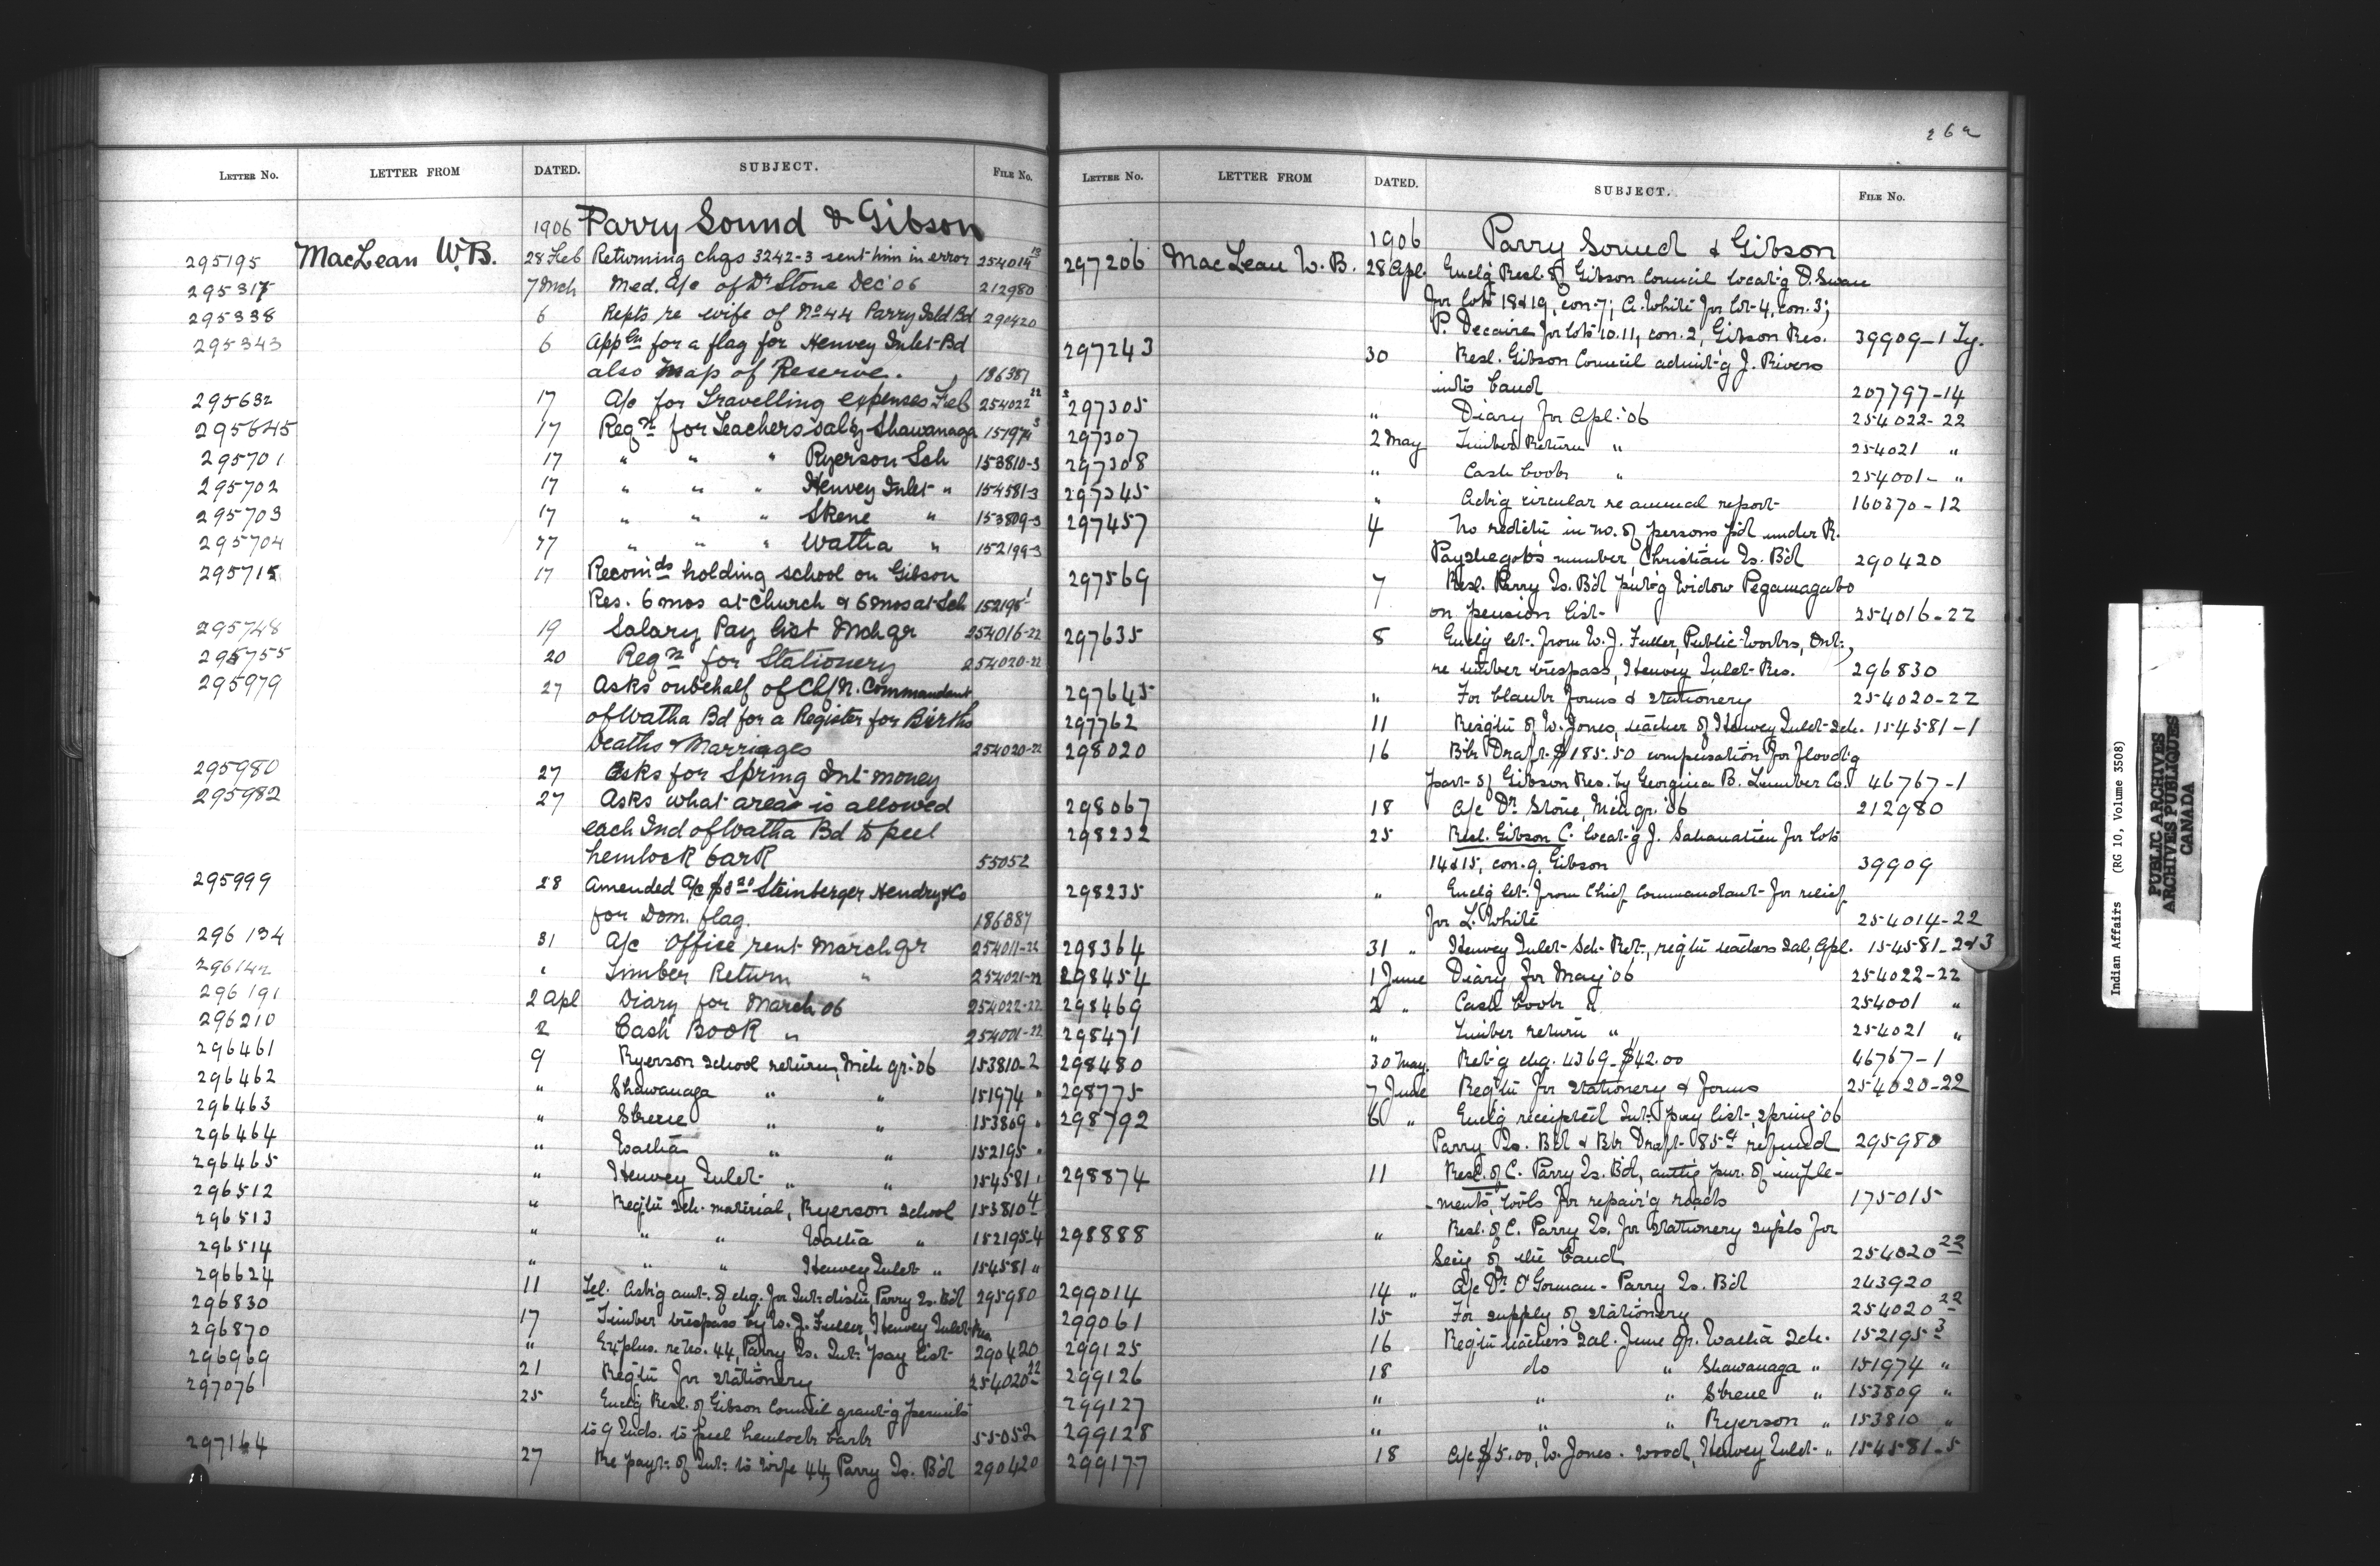 LETTER No. LETTER FROM DATED. SUBJECT. FILE No.
1906 Parry Sound & Gibson
295195 MacLean W.B. 28 Feb Returning chqs 3242-3 sent him in error
7 Mch Med. A/c of Dr Stone Dec '06 212980
295338 6 Repts re wife of No 44 Parry Isld Bd 290420
295343 6 Appln for a flag for Henvey Inlet Bd
also Map of Reserve. 186387
295632 17 A/c for Travelling expenses Feb 254022 22
295645 17 Reqn for Teachers saly Shawanaga 151974 3
295701 17 " " " Ryerson Sch 153810-3
295702 17 " " " Henvey Inlet " 154581-3
295703 17 " " " Skene " 153809-3
295704 17 " " " Watha "
295715 17 Recomds holding school on Gibson
Res. 6 mos at Church & 6 mos at Sch 152195
295748 19 Salary Pay list Mch qr 254016-22
295755 20 Reqn for Stationery 254020-22
295979 27 Asks on behalf of Chf N. Commandant
of Watha Bd for a Register for Births
Deaths & Marriages 254020-22
295980 27 Asks for Spring Int money
295982 27 Asks what area is allowed
each Ind of Watha Bd to peel
hemlock bark 55052
295999 28 Amended A/c Steinberger Hendry & Co
for Dom. flag. 186387
296134 31 A/c Office rent March qr 254011-22
296142 " Timber Return " 254021-22
296191 2 Apl Diary for March 06 254022-22
296210 2 Cash Book " 254001-22
296461 9 Ryerson School return, Mch qr. '06 153810-2
296462 " Shawanaga " " 151974 "
296463 " Skene " " 153809 "
296464 " Watha " " 152195 "
296465 " Henvey Inlet " " 154581 "
296512 " Reqtn Sch. material, Ryerson School 153810 4
296513 " " " Watha " 152195-4
296514 " " " Henvey Inlet " 154581 "
296624 11 Tel. Ask'g amt. of chq. for Int. distn, Parry Is. Bd 295980
296830 17 Timber trespass by W. J. Fuller, Henvey Inlet Res.
296870 " Explns. re No. 44, Parry Is. Int. pay list 290420
296969 21 Reqtn for stationery 254020 22
297076 25 Enclg Resl. of Gibson Council grant'g permits
to 9 Inds. to peel hemlock bark 55052
297164 27 Re payt. of Int. to wife 44, Parry Is. Bd 290420
262
LETTER No. LETTER FROM DATED. SUBJECT. FILE No.
1906 Parry Sound & Gibson
297206 MacLean W. B. 28 Apl. Enclg Resl. of Gibson Council locat'g D. Swan
for lots 18 & 19, con. 7; A. White for lot 4, con. 3;
P. Decaire for lots 10. 11, con. 2, Gibson Res. 39909-1
297243 30 Resl. Gibson Council admit'g J. Rivers
into band 207797-14
297305 " Diary for Apl. '06 254022-22
297307 2 May Timber Return " 254021 "
297308 " Cash book " 254001- "
297345 " Ack'g circular re annual report 160370-12
297457 4 No redctn in no. of persons p'd under R.
number, Christian Is. Bd 290420
297569 7 Resl. Parry Is. Bd put'g Widow Pegamagabo
on pension list 254016-22
297635 8 Enclg let. from W. J. Fuller, Public Works, Ont.,
re timber trespass, Henvey Inlet Res. 296830
297645 " For blank forms & stationery 254020-22
297762 11 Resigtn of W. Jones, teacher of Henvey Inlet Sch. 154581-1
298020 16 Bk Draft $185.50 compensation for flood'g
part of Gibson Res. by Georgian B. Lumber Co. 46767-1
298067 18 A/c Dr. Stone, Mch qr. '06 212980
298232 25 Resl. Gibson C. locat'g J. Sahanatien for lots
14 & 15, con. 9, Gibson 39909
298235 " Enclg let. from Chief Commandant for relief
for L. White 254014-22
298364 31 " Henvey Inlet Sch. Ret., reqtn teachers Sal. Apl. 154581-2 & 3
298454 1 June Diary for May '06 254022-22
298469 2 " Cash book " 254001 "
298471 " Timber return " 254021 "
298480 30 May Ret'g chq. 4369-$42.00 46767-1
298775 7 June Reqtn for stationery & forms 254020-22
298792 6 " Enclg receipted Int. pay list, spring '06
Parry Is. Bd & Bk Draft refund 295980
298874 11 Resl. of C. Parry Is. Bd, authg pur. of imple-
-ments, tools for repair'g roads 175015
298888 " Resl. of C. Parry Is. for stationery supls for
Secy of the band 254020 22
299014 14 " A/c Dr. O'Gorman - Parry Is. Bd 243920
299061 15 For supply of stationery 254020 22
299125 16 Reqtn teachers Sal. June qr. Watha Sch. 152195 3
299126 18 do " Shawanaga " 151974 "
299127 " " " Skene " 153809 "
299128 " " " Ryerson " 153810 "
299177 18 A/c $5.00, W. Jones. wood, Henvey Inlet " 154581-5
Indian Affairs (RG 10, Volume 3508)
PUBLIC ARCHIVES
ARCHIVES PUBLIQUES
CANADA